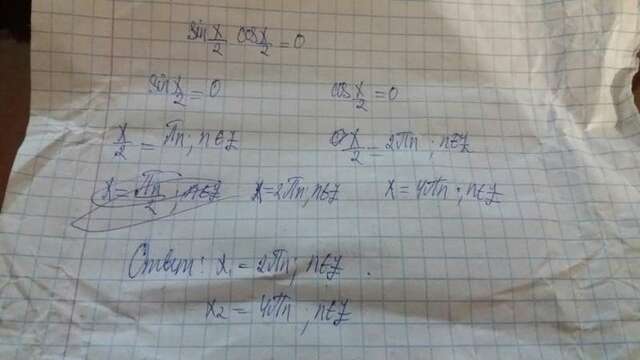 sin x/2 cos x/2 = 0
sin x/2 = 0 cos x/2 = 0
x/2 = πn; n∈Z x/2 = 2πn; n∈Z
x = πn/2; n∈Z x = 2πn; n∈Z x = 4πn; n∈Z
Ответ: x₁ = 2πn; n∈Z.
x₂ = 4πn; n∈Z